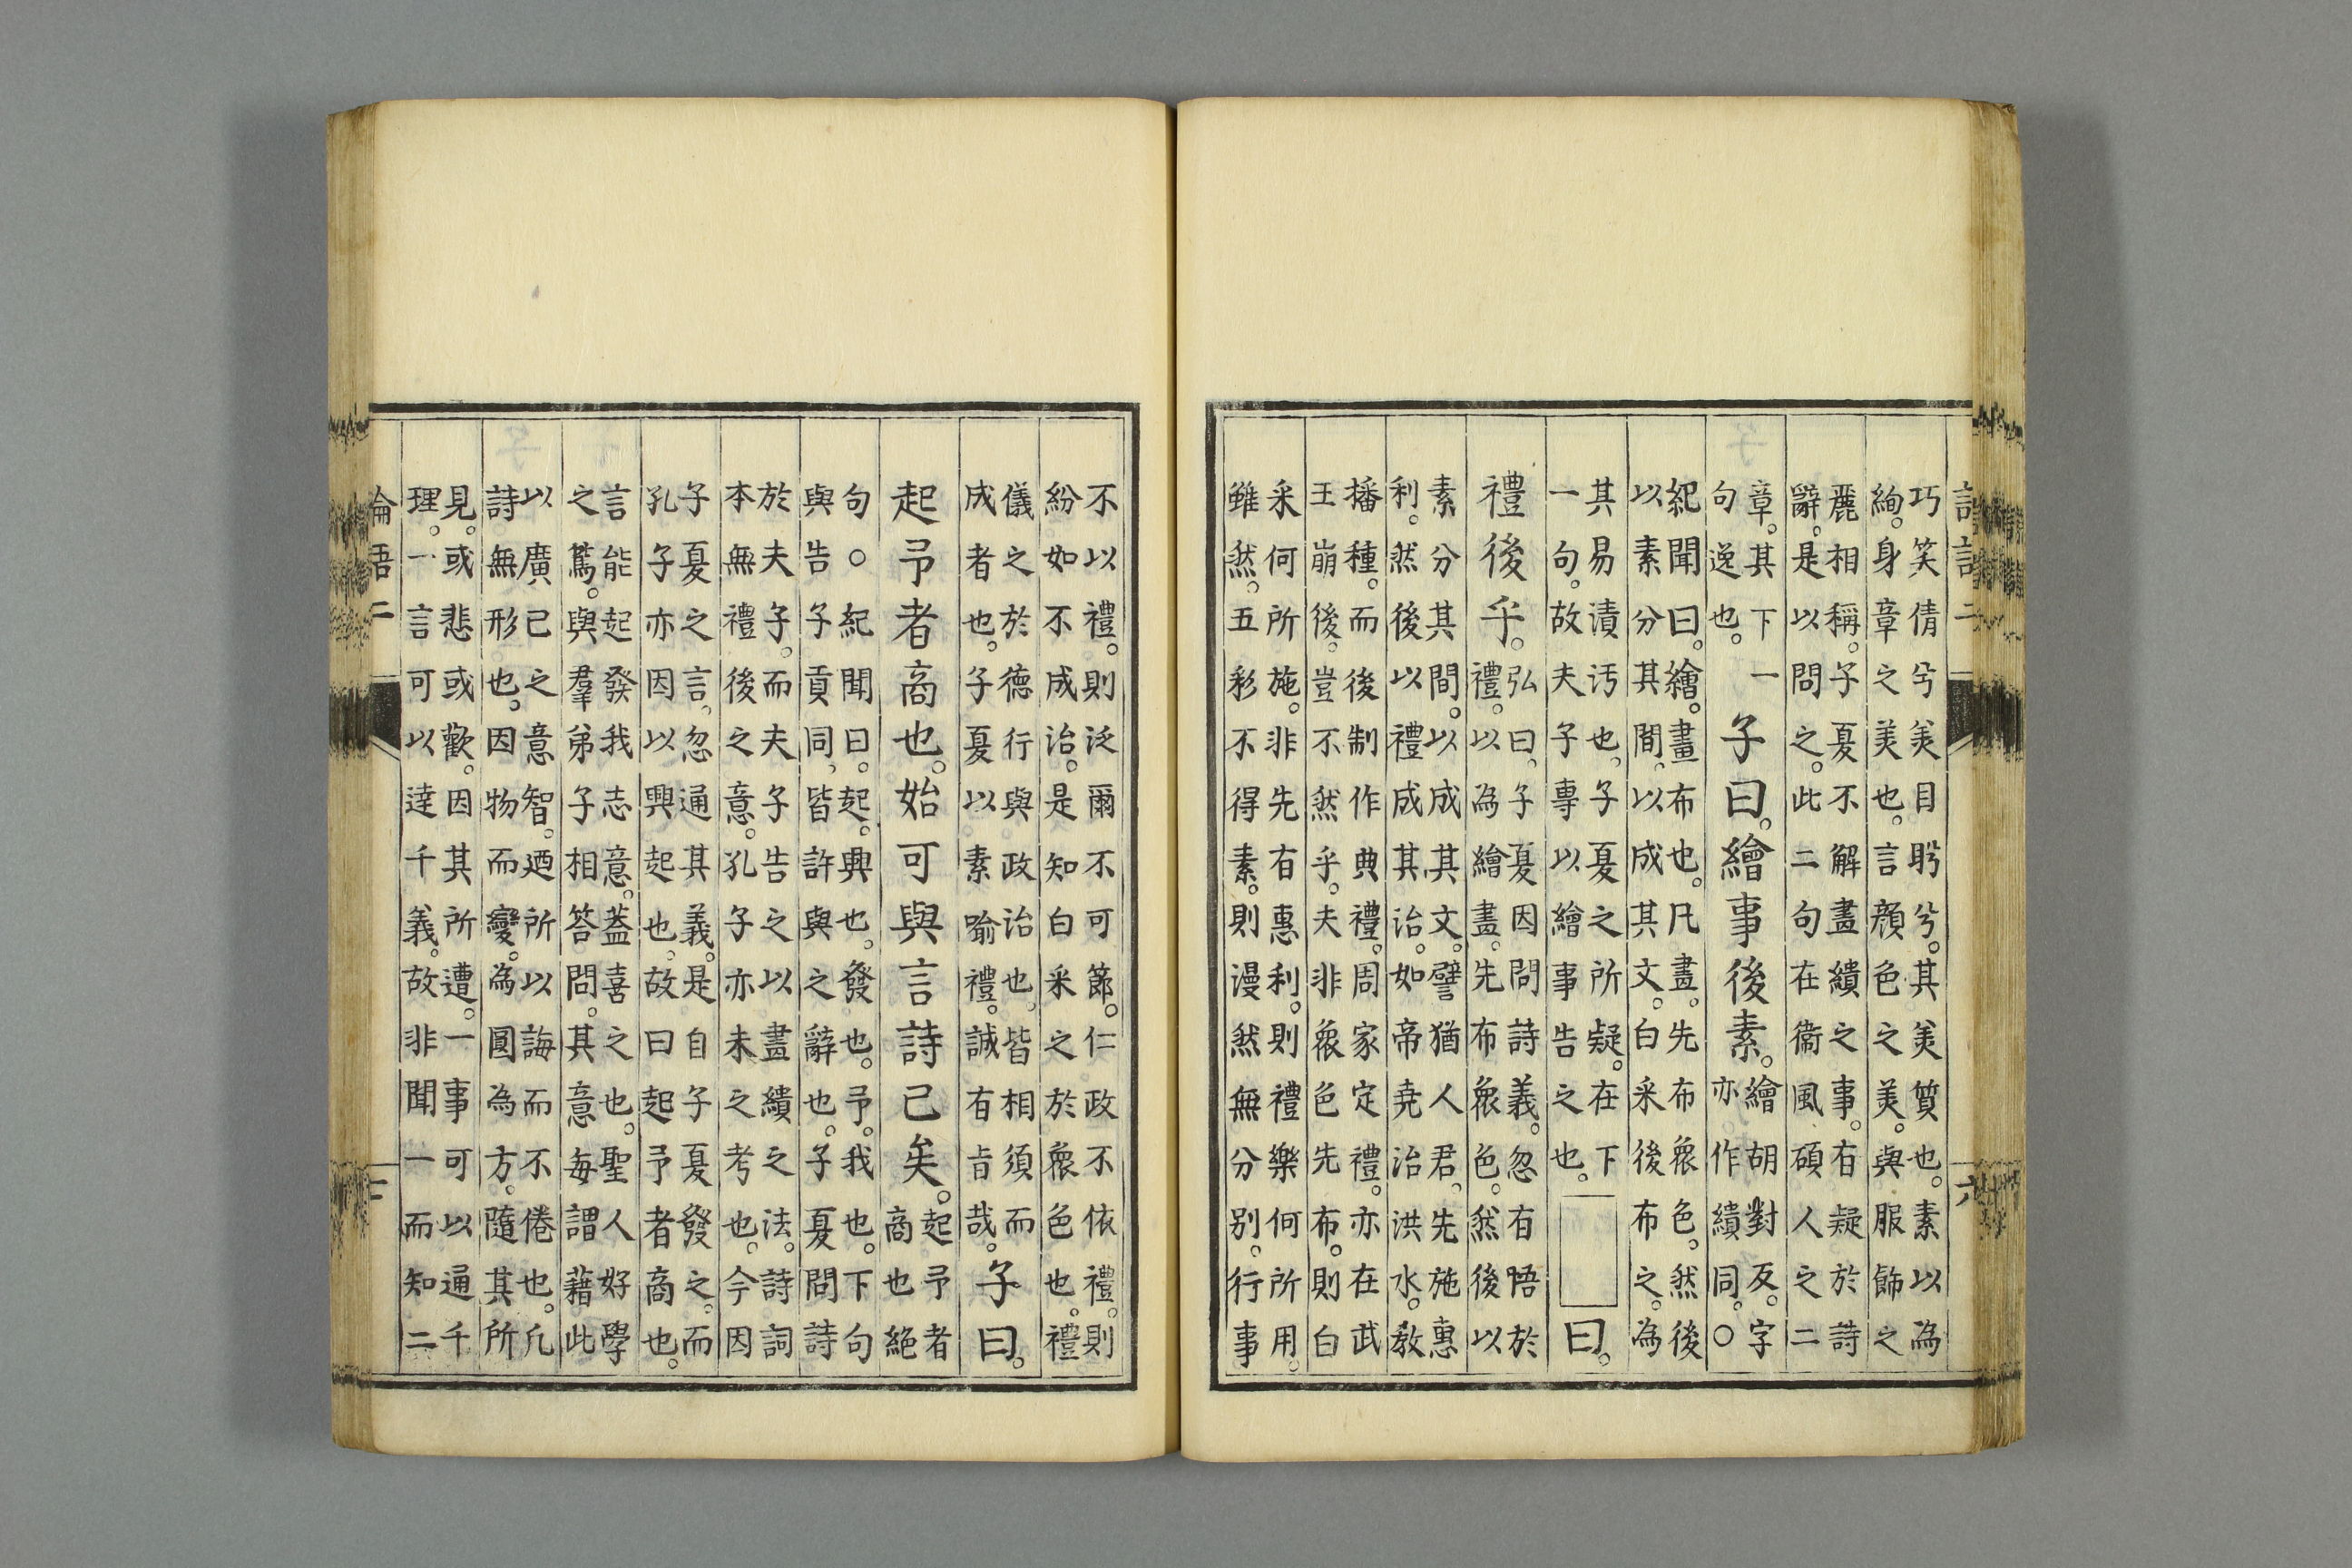 巧笑倩兮美目盼兮。其美質也。素以為
絢。身章之美也。言顔色之美。與服飾之
麗相稱。子夏不解畫繢之事。有疑於詩
辭。是以問之。此二句在衞風碩人之二
章。其下一
句逸也。
子曰。繪事後素。
繪胡對反。字
亦作繢同。○
紀聞曰。繪。畫布也。凡畫。先布衆色。然後
以素分其間。以成其文。白采後布之。為
其易漬汚也。子夏之所疑。在下
一句。故夫子專以繪事告之也。
曰。
禮後乎。
弘曰。子夏因問詩義。忽有悟於
禮。以為繪畫。先布衆色。然後以
素分其間。以成其文。譬猶人君。先施惠
利。然後以禮成其治。如帝堯治洪水。教
播種。而後制作典禮。周家定禮。亦在武
王崩後。豈不然乎。夫非衆色先布。則白
采何所施。非先有惠利。則禮樂何所用。
雖然。五彩不得素。則漫然無分别。行事
不以禮。則泛爾不可節。仁政不依禮。則
紛如不成治。是知白采之於衆色也。禮
儀之於德行與政治也。皆相須而
成者也。子夏以素喻禮。誠有旨哉。
子曰。
起予者商也。始可與言詩已矣。
起予者
商也絶
句○紀聞曰。起。興也。發也。予。我也。下句
與告子貢同。皆許與之辭也。子夏問詩
於夫子。而夫子告之以畫繢之法。詩詞
本無禮後之意。孔子亦未之考也。今因
子夏之言。忽通其義。是自子夏發之。而
孔子亦因以興起也。故曰起予者商也。
言能起發我志意。蓋喜之也。聖人好學
之篤。與羣弟子相答問。其意每謂藉此
以廣己之意智。廼所以誨而不倦也。凡
詩無形也。因物而變。為圓為方。隨其所
見。或悲或歡。因其所遭。一事可以通千
理。一言可以達千義。故非聞一而知二